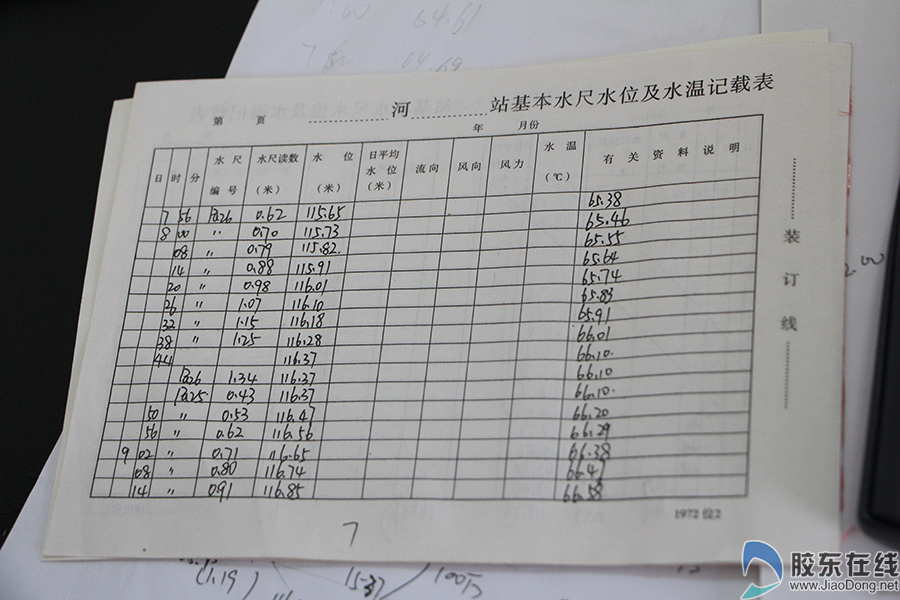 1:00 64.61
64.69
第 页 河 站基本水尺水位及水温记载表
年 月份
日 时 分 水尺编号 水尺读数(米) 水位(米) 日平均水位(米) 流向 风向 风力 水温(℃) 有关资料说明
7 56 P126 0.62 115.65 65.38
8 00 〃 0.70 115.73 65.46
08 〃 0.79 115.82 65.55
14 〃 0.88 115.91 65.64
20 〃 0.98 116.01 65.74
26 〃 1.07 116.10 65.83
32 〃 1.15 116.18 65.91
38 〃 1.25 116.28 66.01
44 116.37 66.10
P126 1.34 116.37 66.10
P125 0.43 116.37 66.10
50 〃 0.53 116.47 66.20
56 〃 0.62 116.56 66.29
9 02 〃 0.71 116.65 66.38
08 〃 0.80 116.74 66.47
14 〃 0.91 116.85 66.58
装订线
1972位2
7
(1.19) 15:37 / 100万
胶东在线
www.JiaoDong.net